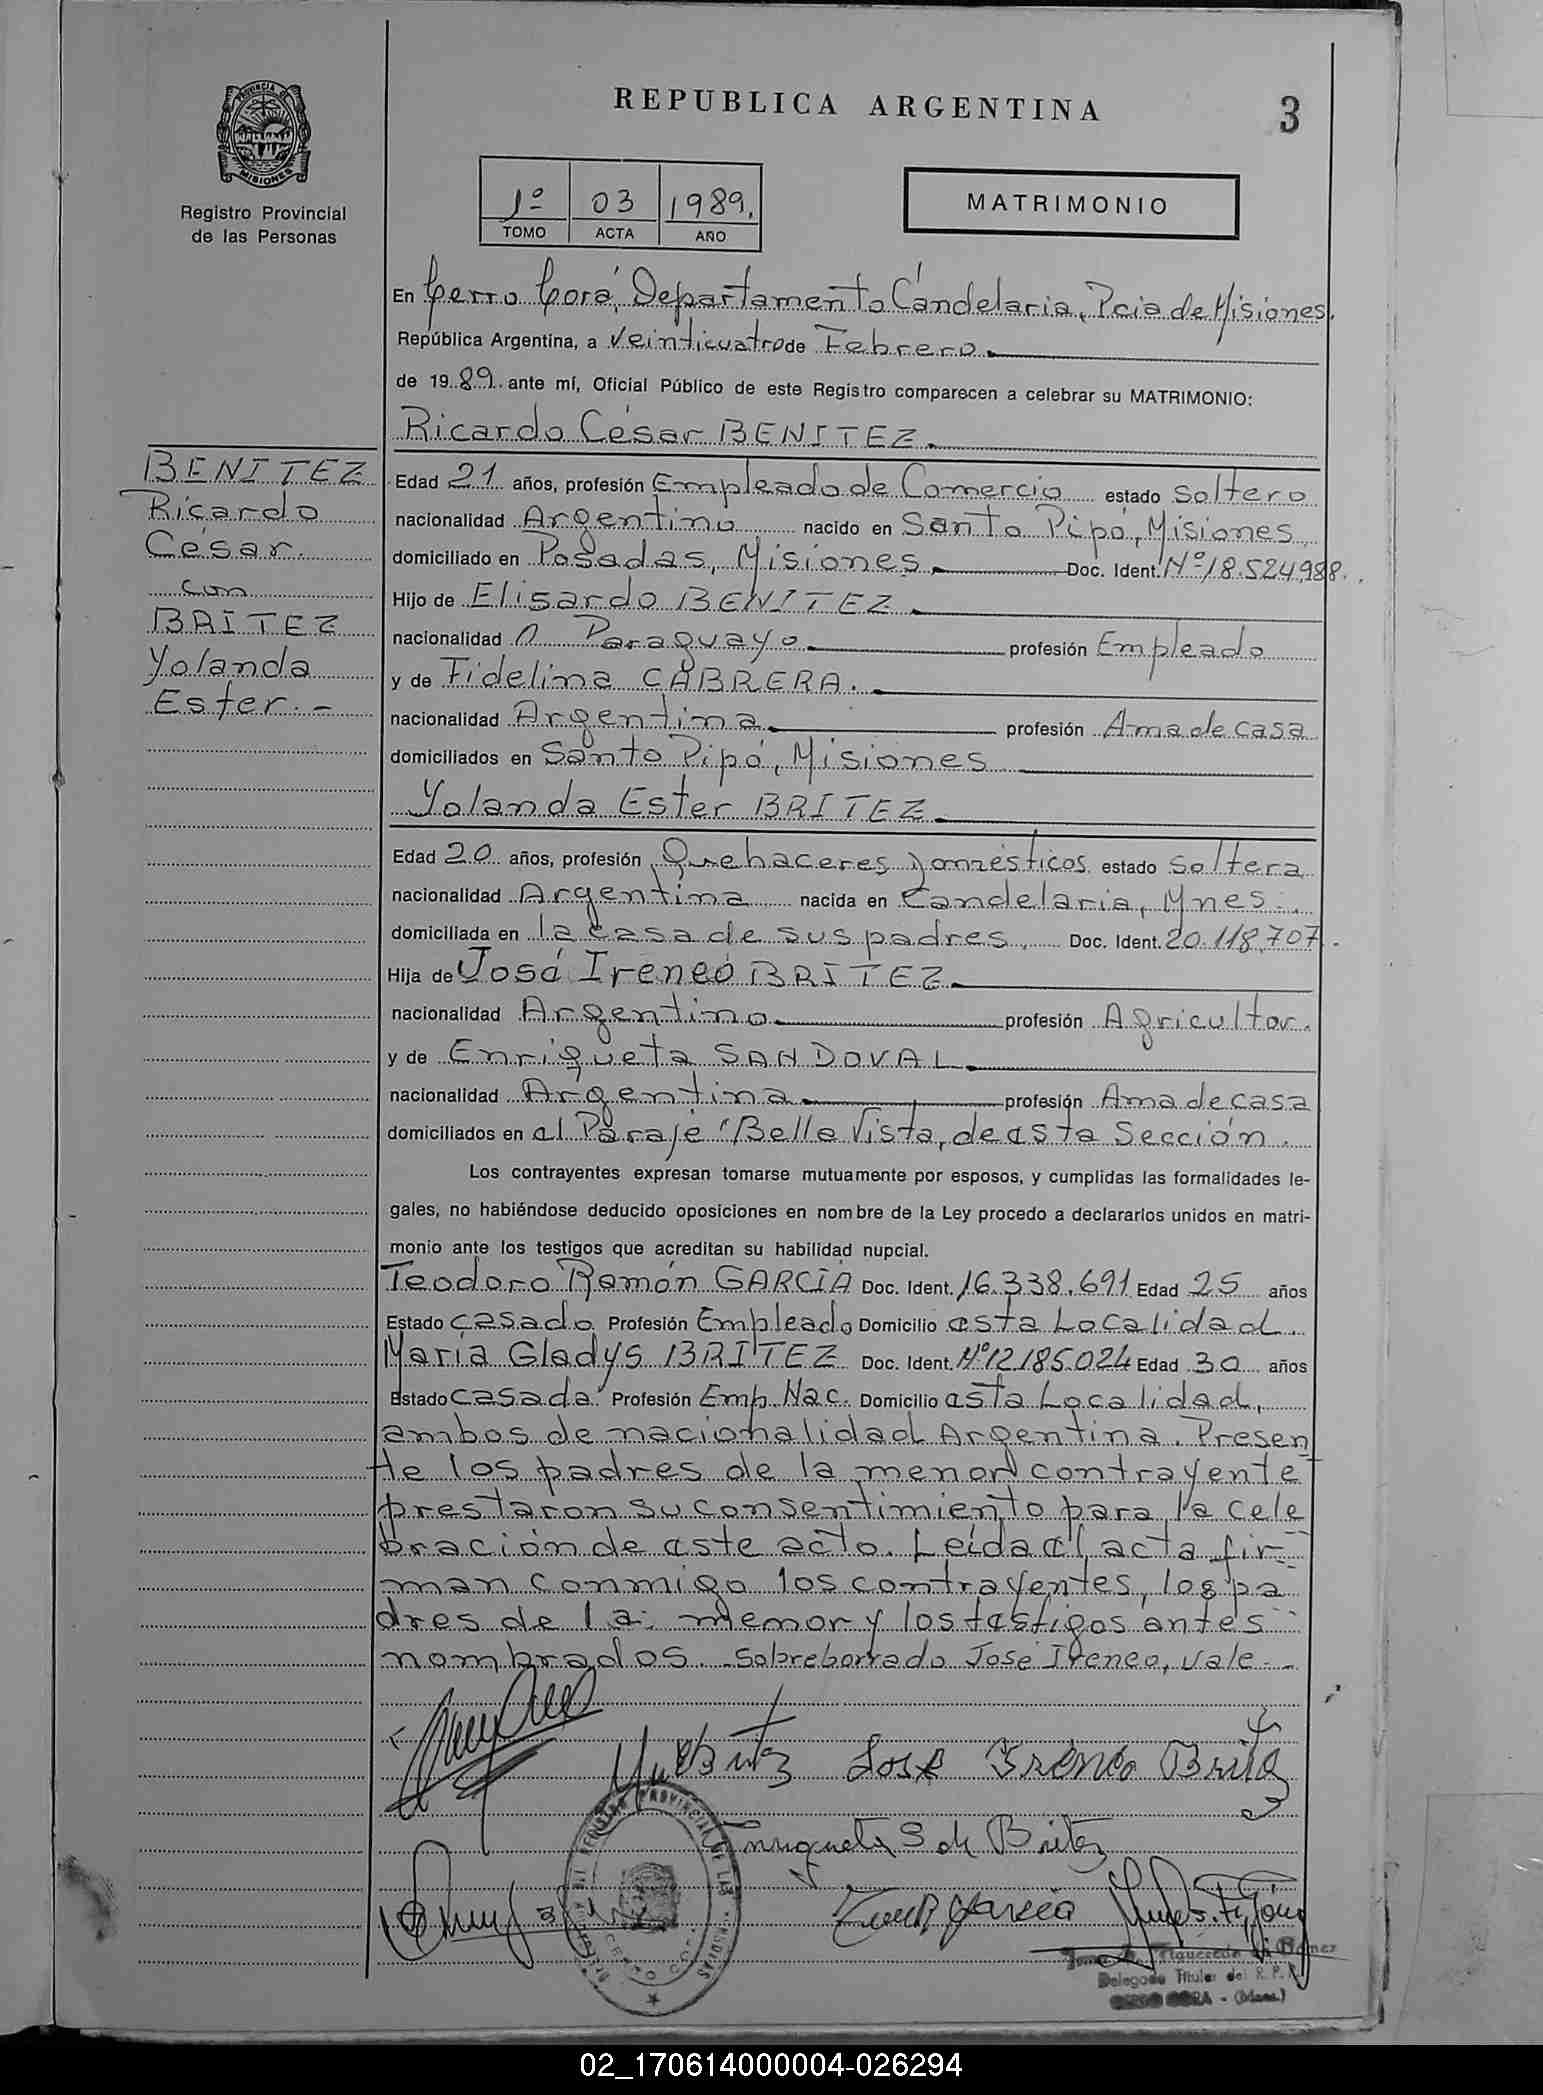 REPUBLICA ARGENTINA
3
PROVINCIA DE
MISIONES
Registro Provincial
de las Personas
1º 03 1989.
TOMO ACTA AÑO
MATRIMONIO
En Cerro Corá, Departamento Candelaria, Pcia de Misiones.
República Argentina, a veinticuatro de Febrero.
de 19 89 ante mí, Oficial Público de este Registro comparecen a celebrar su MATRIMONIO:
Ricardo César BENITEZ.
BENITEZ
Ricardo
César.
con
BRITEZ
Yolanda
Ester.-
Edad 21 años, profesión Empleado de Comercio estado soltero
nacionalidad Argentino nacido en Santo Pipó, Misiones
domiciliado en Posadas, Misiones. Doc. Ident. Nº 18.524.988.
Hijo de Elisardo BENITEZ.
nacionalidad Paraguayo. profesión Empleado
y de Fidelina CABRERA.
nacionalidad Argentina. profesión Ama de casa
domiciliados en Santo Pipó, Misiones
Yolanda Ester BRITEZ.
Edad 20 años, profesión Quehaceres domésticos estado soltera
nacionalidad Argentina nacida en Candelaria, Mnes.
domiciliada en la casa de sus padres, Doc. Ident. 20.118.707.
Hija de José Ireneo BRITEZ.
nacionalidad Argentino profesión Agricultor.
y de Enriqueta SANDOVAL.
nacionalidad Argentina. profesión Ama de casa
domiciliados en el Paraje "Bella Vista, de esta Sección.
Los contrayentes expresan tomarse mutuamente por esposos, y cumplidas las formalidades le-
gales, no habiéndose deducido oposiciones en nombre de la Ley procedo a declararlos unidos en matri-
monio ante los testigos que acreditan su habilidad nupcial.
Teodoro Ramón GARCÍA Doc. Ident. 16.338.691 Edad 25 años
Estado casado Profesión Empleado Domicilio esta Localidad.
María Gladys BRITEZ Doc. Ident. Nº 12185.024 Edad 30 años
Estado casada Profesión Emp. Nac. Domicilio esta Localidad,
ambos de nacionalidad Argentina. Presen
te los padres de la menor contrayente
prestaron su consentimiento para la cele
bración de este acto. Leída el acta fir-
man conmigo los contrayentes, los pa
dres de la menor y los testigos antes
nombrados. Sobreborrado José Ireneo, vale.-
José Ireneo Britez
Enriqueta S de Britez
REGISTRO PROVINCIAL DE LAS
García
Figueredo de
Delegada Titular del R. P.
CERRO CORA - (Mnes.)
02_170614000004-026294